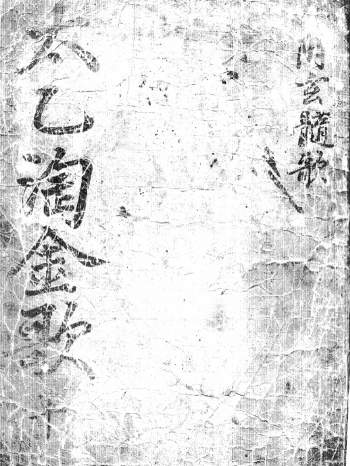 内玄髓歌
太乙淘金歌